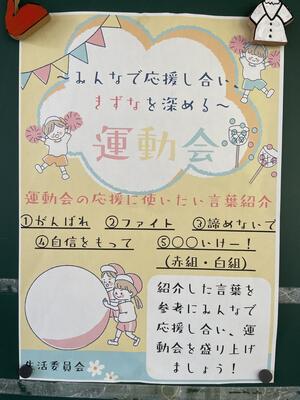 ～みんなで応援し合い、
きずなを深める～
運動会
運動会の応援に使いたい言葉紹介
①がんばれ ②ファイト ③諦めないで
④自信をもって ⑤○○いけー！
(赤組・白組)
紹介した言葉を
参考にみんなで
応援し合い、運
動会を盛り上げ
ましょう！
生活委員会